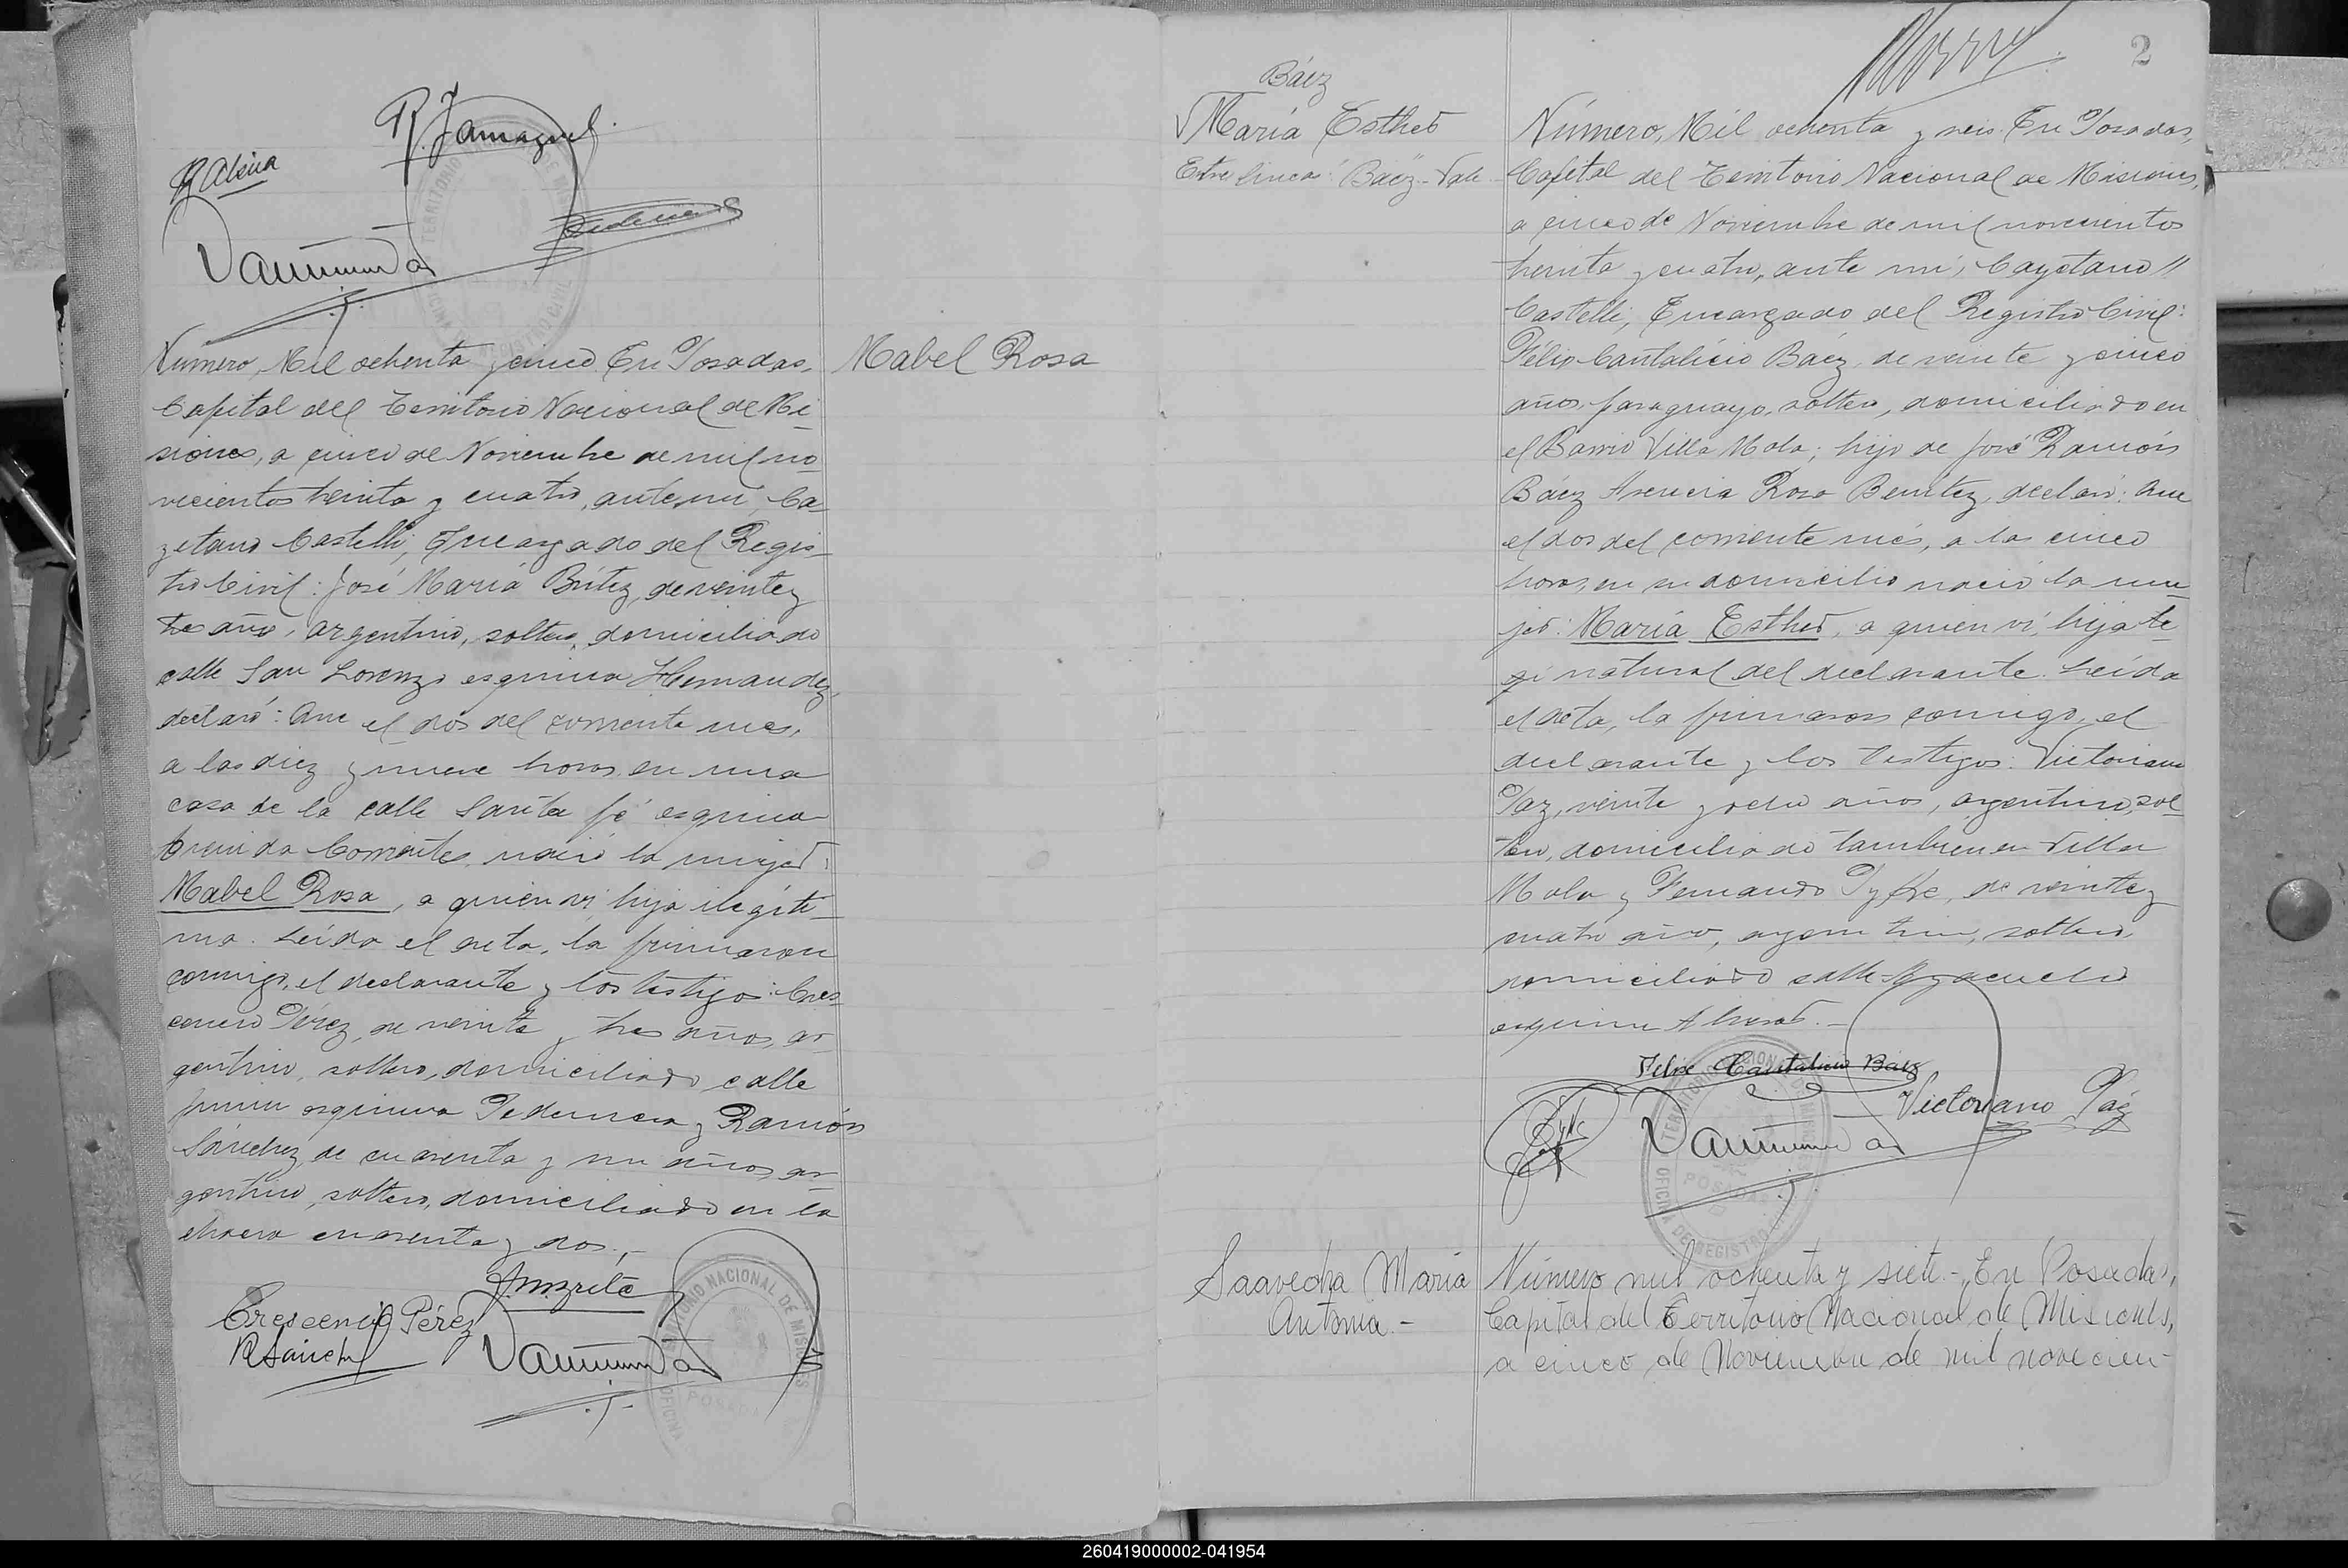 Número, Mil ochenta y cinco. En Posadas,
Mabel Rosa
Capital del Territorio Nacional de Mi-
siones, a cinco de Noviembre de mil no-
vecientos treinta y cuatro, ante mi, Ca-
yetano Castelli, Encargado del Regis-
tro Civil: José María Brítez, de veinte y
tres años, argentino, soltero, domiciliado
calle San Lorenzo esquina Hernandez,
declaró: Que el dos del corriente mes,
a las diez y nueve horas, en una
casa de la calle Santa fé esquina
Avenida Corrientes, nació la mujer:
Mabel Rosa, a quien vi, hija ilegíti-
ma. Leída el acta, la firmaron
conmigo, el declarante y los testigos: Cres-
cencio Pérez, de veinte y tres años, ar-
gentino, soltero, domiciliado calle
esquina Pedernera y Ramón
Sánchez, de cuarenta y un años, ar-
gentino, soltero, domiciliado en la
chacra cuarenta y dos.-
Crescencio Pérez
RSanchez
TERRITORIO NACIONAL DE MISIONES
OFICINA
POSADAS
2
Báez
María Esther
Entre linea: Báez - Vale
Número, Mil ochenta y seis. En Posadas,
Capital del Territorio Nacional de Misiones,
a cinco de Noviembre de mil novecientos
treinta y cuatro, ante mi, Cayetano //
Castelli, Encargado del Registro Civil:
Félix Cantalicio Báez, de veinte y cinco
años, paraguayo, soltero, domiciliado en
el Barrio Villa Mola; hijo de José Ramón
Báez Asencia Rosa Benítez, declaró: Que
el dos del corriente mes, a las cinco
horas, en su domicilio nació la mu-
jer: María Esther, a quien vi, hija
natural del declarante. Leída
el acta, la firmaron conmigo, el
declarante y los testigos: Victoriano
Paz, veinte y ocho años, argentino, sol-
tero, domiciliado tambien en Villa
Mola y Fernando de veinte y
cuatro años, argentino, soltero,
domiciliado calle Ayacucho
esquina
Felix Cantalicio Báez
Victoriano Páz
TERRITORIO NACIONAL DE MISIONES
POSADAS
OFICINA DE REGISTRO CIVIL
Saavedra María
Antonia.-
Número mil ochenta y siete.- En Posadas,
Capital del Territorio Nacional de Misiones,
a cinco de Noviembre de mil novecien-
260419000002-041954